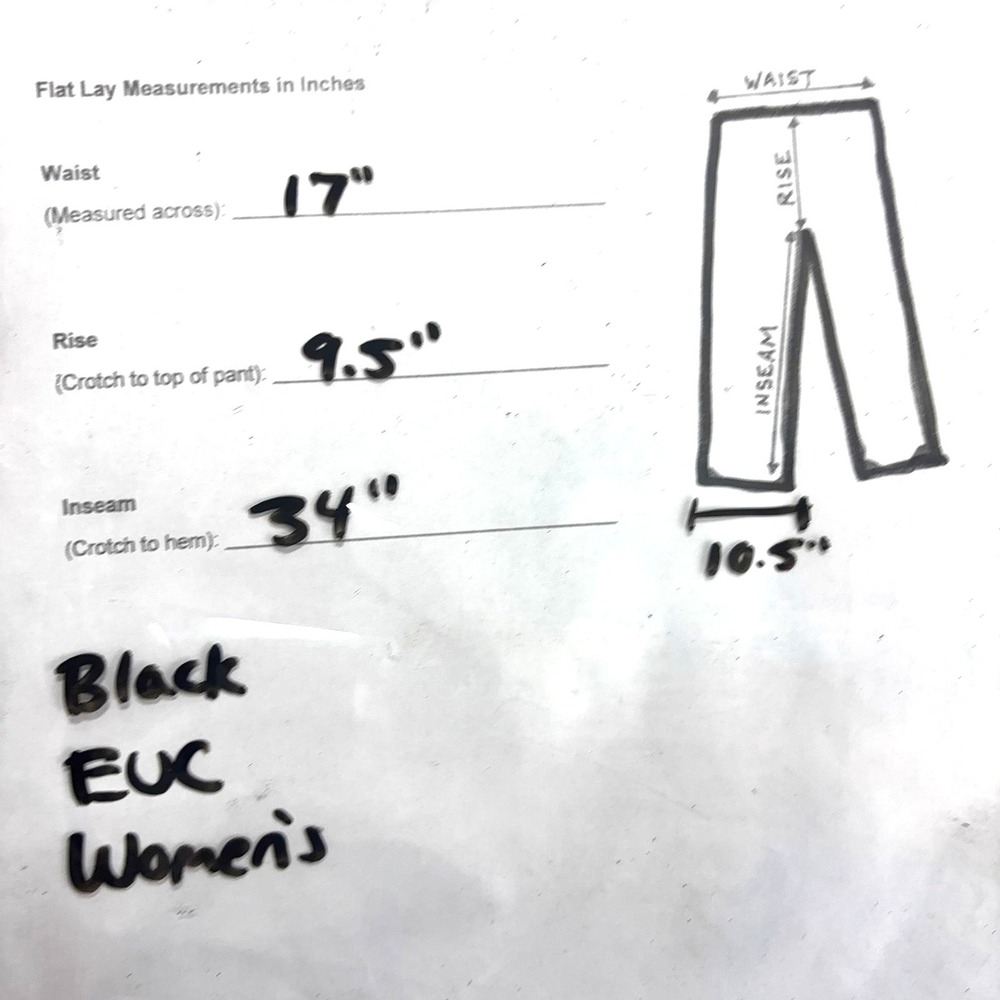 Flat Lay Measurements in Inches
WAIST
Waist
(Measured across): 17"
RISE
Rise
(Crotch to top of pant): 9.5"
INSEAM
Inseam
(Crotch to hem): 34"
10.5"
Black
EUC
Women's